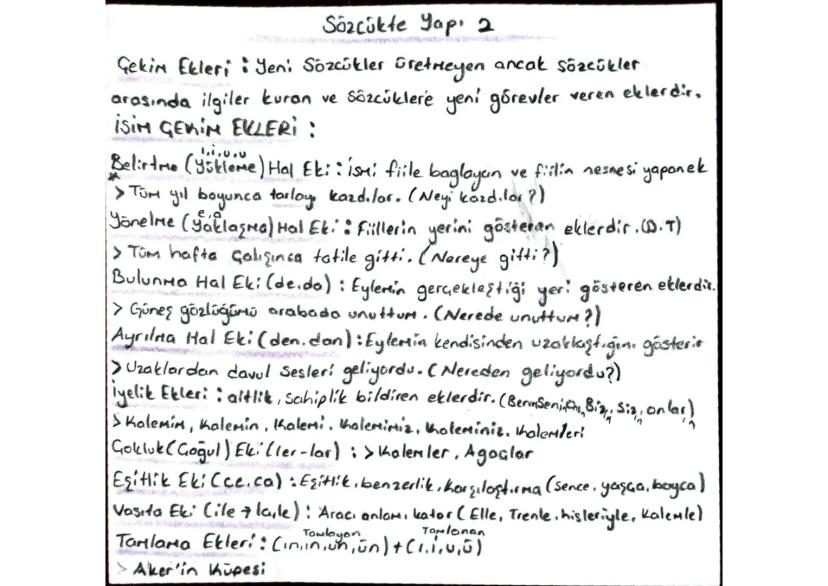 Sözcükte Yapı 2
Çekim Ekleri : Yeni Sözcükler üretmeyen ancak sözcükler
arasında ilgiler kuran ve sözcüklere yeni görevler veren eklerdir.
İSİM ÇEKİM EKLERİ :
ı,i,u,ü
Belirtme (Yükleme) Hal Eki : İsmi fiile bağlayan ve fiilin nesnesi yapan ek
> Tüm yıl boyunca tarlayı kazdılar. (Neyi kazdılar?)
e,a
Yönelme (Yaklaşma) Hal Eki : Fiillerin yerini gösteren eklerdir. (D.T)
> Tüm hafta çalışınca tatile gitti. (Nereye gitti?)
Bulunma Hal Eki (de,da) : Eylemin gerçekleştiği yeri gösteren eklerdir.
> Güneş gözlüğümü arabada unuttum. (Nerede unuttum?)
Ayrılma Hal Eki (den,dan) : Eylemin kendisinden uzaklaştığını gösterir
> Uzaklardan davul sesleri geliyordu. (Nereden geliyordu?)
İyelik Ekleri : aitlik, sahiplik bildiren eklerdir. (Benim, Senin, On, Biz, Siz, onlar)
> Kalemim, Kalemin, Kalemi, Kalemimiz, Kaleminiz, Kalemleri
Çokluk (Çoğul) Eki (ler-lar) : > Kalemler, Ağaçlar
Eşitlik Eki (ce,ca) : Eşitlik, benzerlik, karşılaştırma (sence, yaşça, boyca)
Vasıta Eki (ile → la,le) : Aracı anlamı katar (Elle, Trenle, hisleriyle, Kalemle)
Tamlayan Tamlanan
Tamlama Ekleri : (ın,in,un,ün) + (ı,i,u,ü)
> Aker'in Küpesi